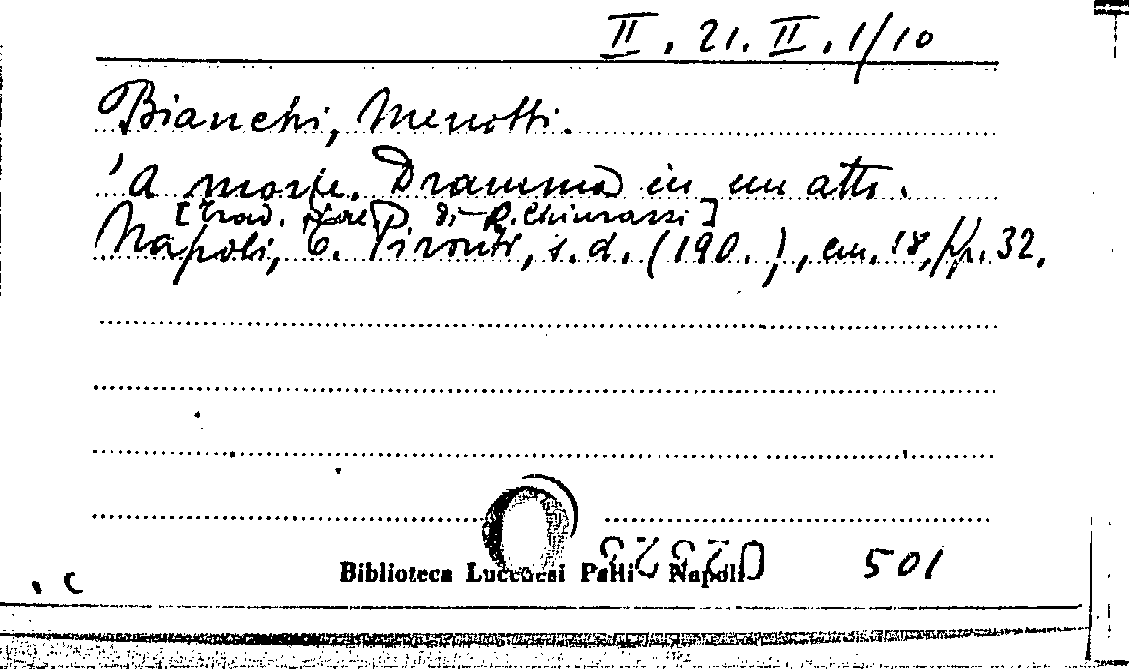 II. 21. II. 1/10
Bianchi, Menotti.
'A morte. Dramma in un atto.
[Trad. di R. Chiurazzi]
Napoli, T. Pironti, s.d. (190.), cm. 18, pp. 32.
Biblioteca Lucchesi Palli - Napoli
501